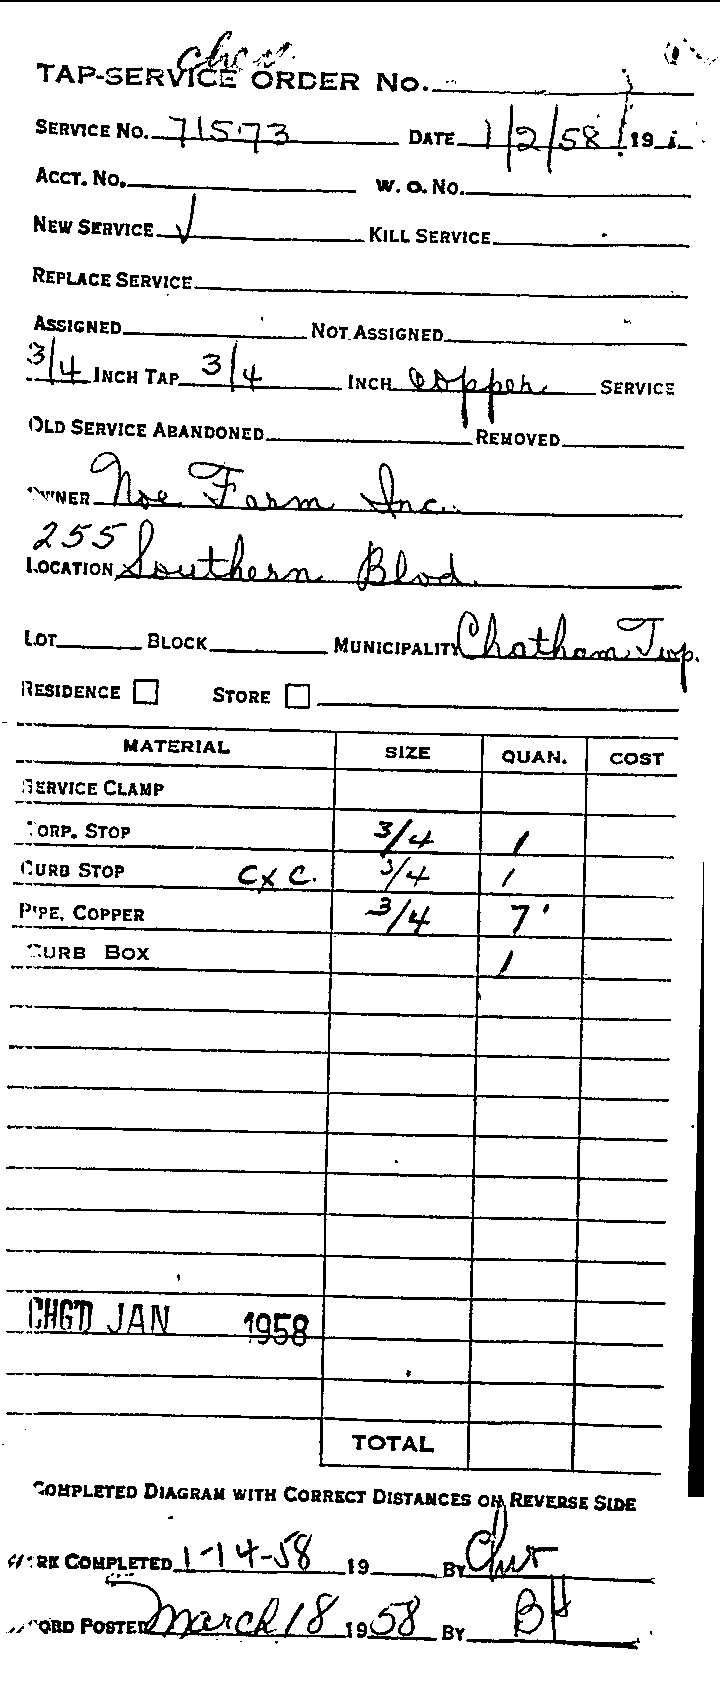 TAP-SERVICE ORDER No.
SERVICE No. 71573 DATE 1/2/58 19
ACCT. No. W. O. No.
NEW SERVICE √ KILL SERVICE
REPLACE SERVICE
ASSIGNED NOT ASSIGNED
3/4 INCH TAP 3/4 INCH copper SERVICE
OLD SERVICE ABANDONED REMOVED
OWNER Noe Farm Inc.
255
LOCATION Southern Blvd.
LOT BLOCK MUNICIPALITY Chatham Twp.
RESIDENCE STORE
MATERIAL SIZE QUAN. COST
SERVICE CLAMP
CORP. STOP 3/4 1
CURB STOP C x C. 3/4 1
PIPE, COPPER 3/4 7'
CURB BOX 1
CHG'D JAN 1958
TOTAL
COMPLETED DIAGRAM WITH CORRECT DISTANCES ON REVERSE SIDE
WORK COMPLETED 1-14-58 19 BY
RECORD POSTED March 18 1958 BY BH